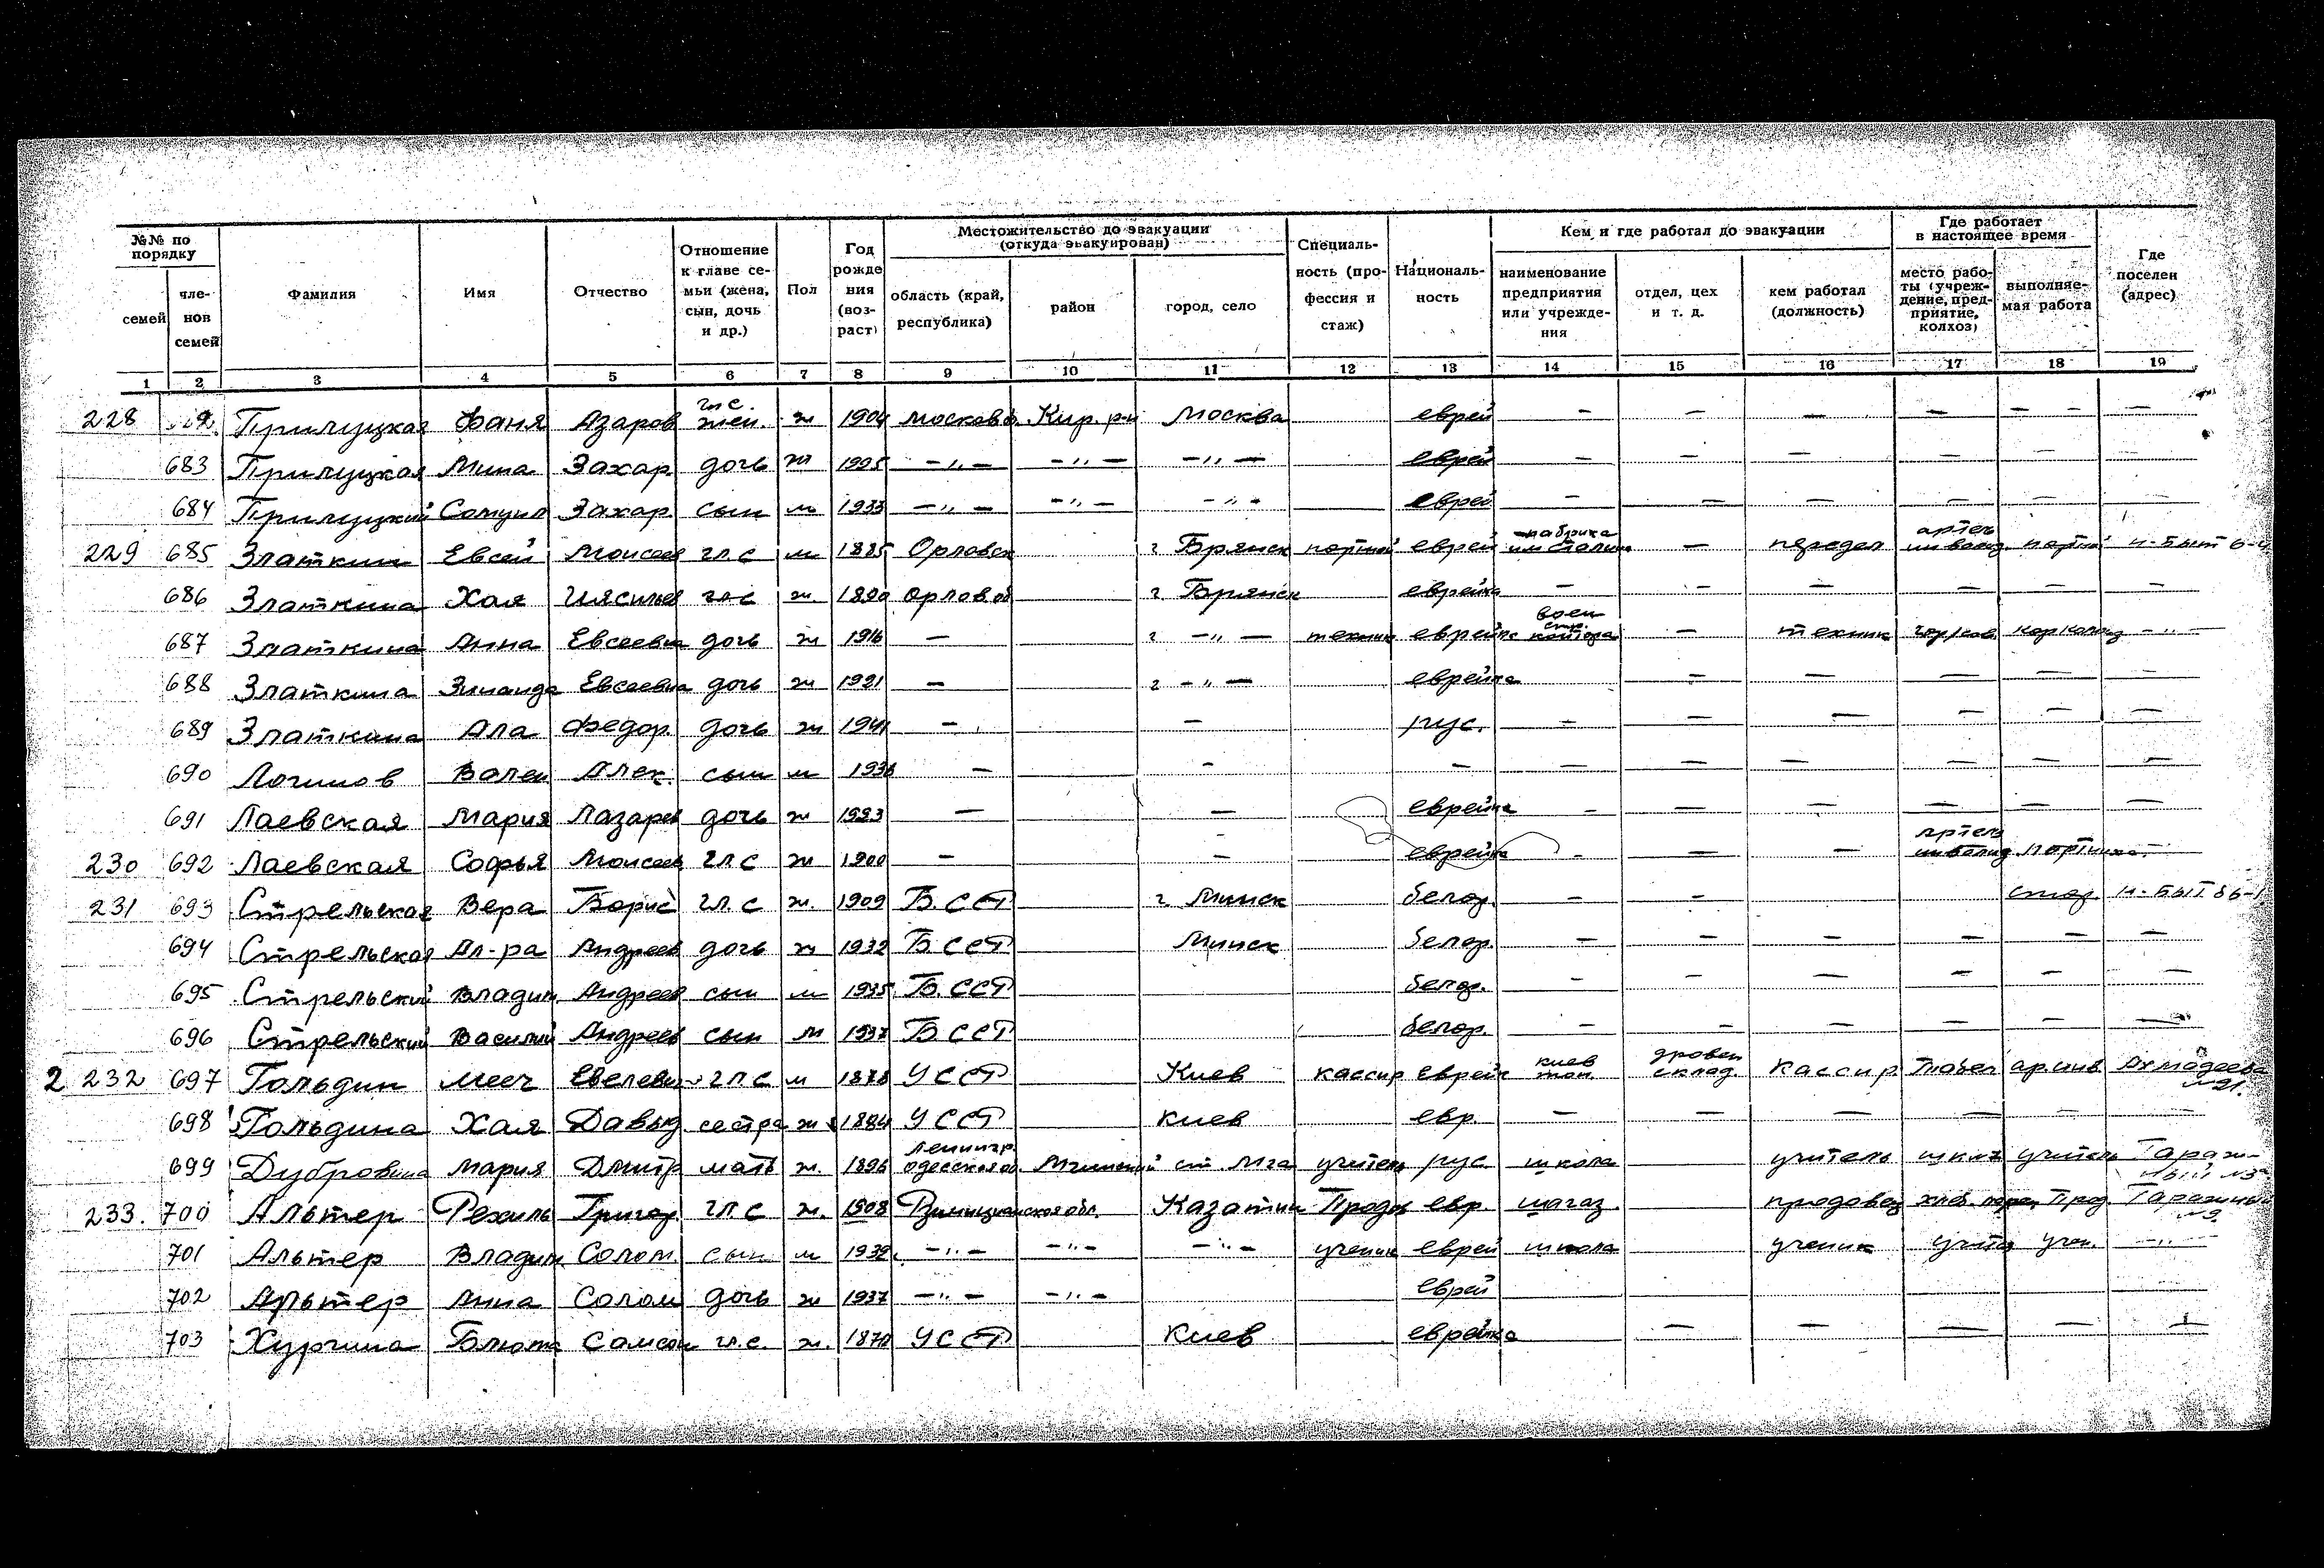 №№ по порядку
семей
членов семей
Фамилия
Имя
Отчество
Отношение к главе семьи (жена, сын, дочь и др.)
Пол
Год рождения (возраст)
Местожительство до эвакуации (откуда эвакуирован)
область (край, республика)
район
город, село
Специальность (профессия и стаж)
Национальность
Кем и где работал до эвакуации
наименование предприятия или учреждения
отдел, цех и т. д.
кем работал (должность)
Где работает в настоящее время
место работы (учреждение, предприятие, колхоз)
выполняемая работа
Где поселен (адрес)
1 2 3 4 5 6 7 8 9 10 11 12 13 14 15 16 17 18 19
228 Прилуцкая Фаня Азаров гл с. жен. ж 1904 московс Кир. р-н Москва еврей — — — — — —
683 Прилуцкая Мина Захар. дочь ж 1925 —„— —„— —„— еврей — — — — — —
684 Прилуцкий Самуил Захар. сын м 1933 —„— —„— —„— еврей — — — — — —
229 685 Златкин Евсей Моисеев гл.с м 1885 Орловск г Брянск портной еврей фабрика им Сталина — артель инвалид. портной
686 Златкина Хая гл.с ж. 1890 Орлов об г Брянск еврейка — — — — — —
687 Златкина Анна Евсеевна дочь ж 1916 — г —„— техник еврейка воен стр. контора — техник —„—
688 Златкина Зинаида Евсеевна дочь ж 1921 — г —„— еврейка — — — — —
689 Златкина Ала Федор. дочь ж 1941 — — рус. — — — — — —
690 Логинов Вален Алек. сын м 1936 — — — — — — — — —
691 Лаевская Мария Лазарев дочь ж 1923 — — еврейка — — — — — —
230 692 Лаевская Софья Моисеев гл.с ж 1900 — — еврейка — — — артель инвалид. портниха.
231 693 Стрельская Вера Борис гл. с ж. 1909 Б.ССР г. Минск белор. — —
694 Стрельская Ал-ра Андреев дочь ж 1932 Б ССР Минск белор. — — — — — —
695 Стрельский Владим Андреев сын м 1935 Б. ССР белор. — — — — — —
696 Стрельский Василий Андреев сын м 1937 Б ССР белор. — — — — — —
2 232 697 Гольдин гл с м 1878 УССР Киев кассир еврей киев топ. дровен склад. кассир. Табел Ахмадеева №21.
698 Гольдина Хая Давыд сестра ж 1884 УССР Киев евр. — — — — — —
699 Дубровина Мария Дмитр мать ж. 1896 ленингр. одесской об Мгинский ст. Мга учител рус школа учитель школ учитель Гаражный №3
233. 700 Альтер Рехиль Григор. гл. с ж. 1908 Винницианская обл. Казатин Продав евр. магаз. продавец Прод. Гаражный №9
701 Альтер Владим Солом. сын м 1932 —„— —„— —„— ученик еврей школа ученик учен. —„—
702 Альтер Анна Солом дочь ж 1937 —„— —„— еврей
703 Хургина Блюма Самсон гл.с. ж. 1870 УССР Киев еврейка — — — — —